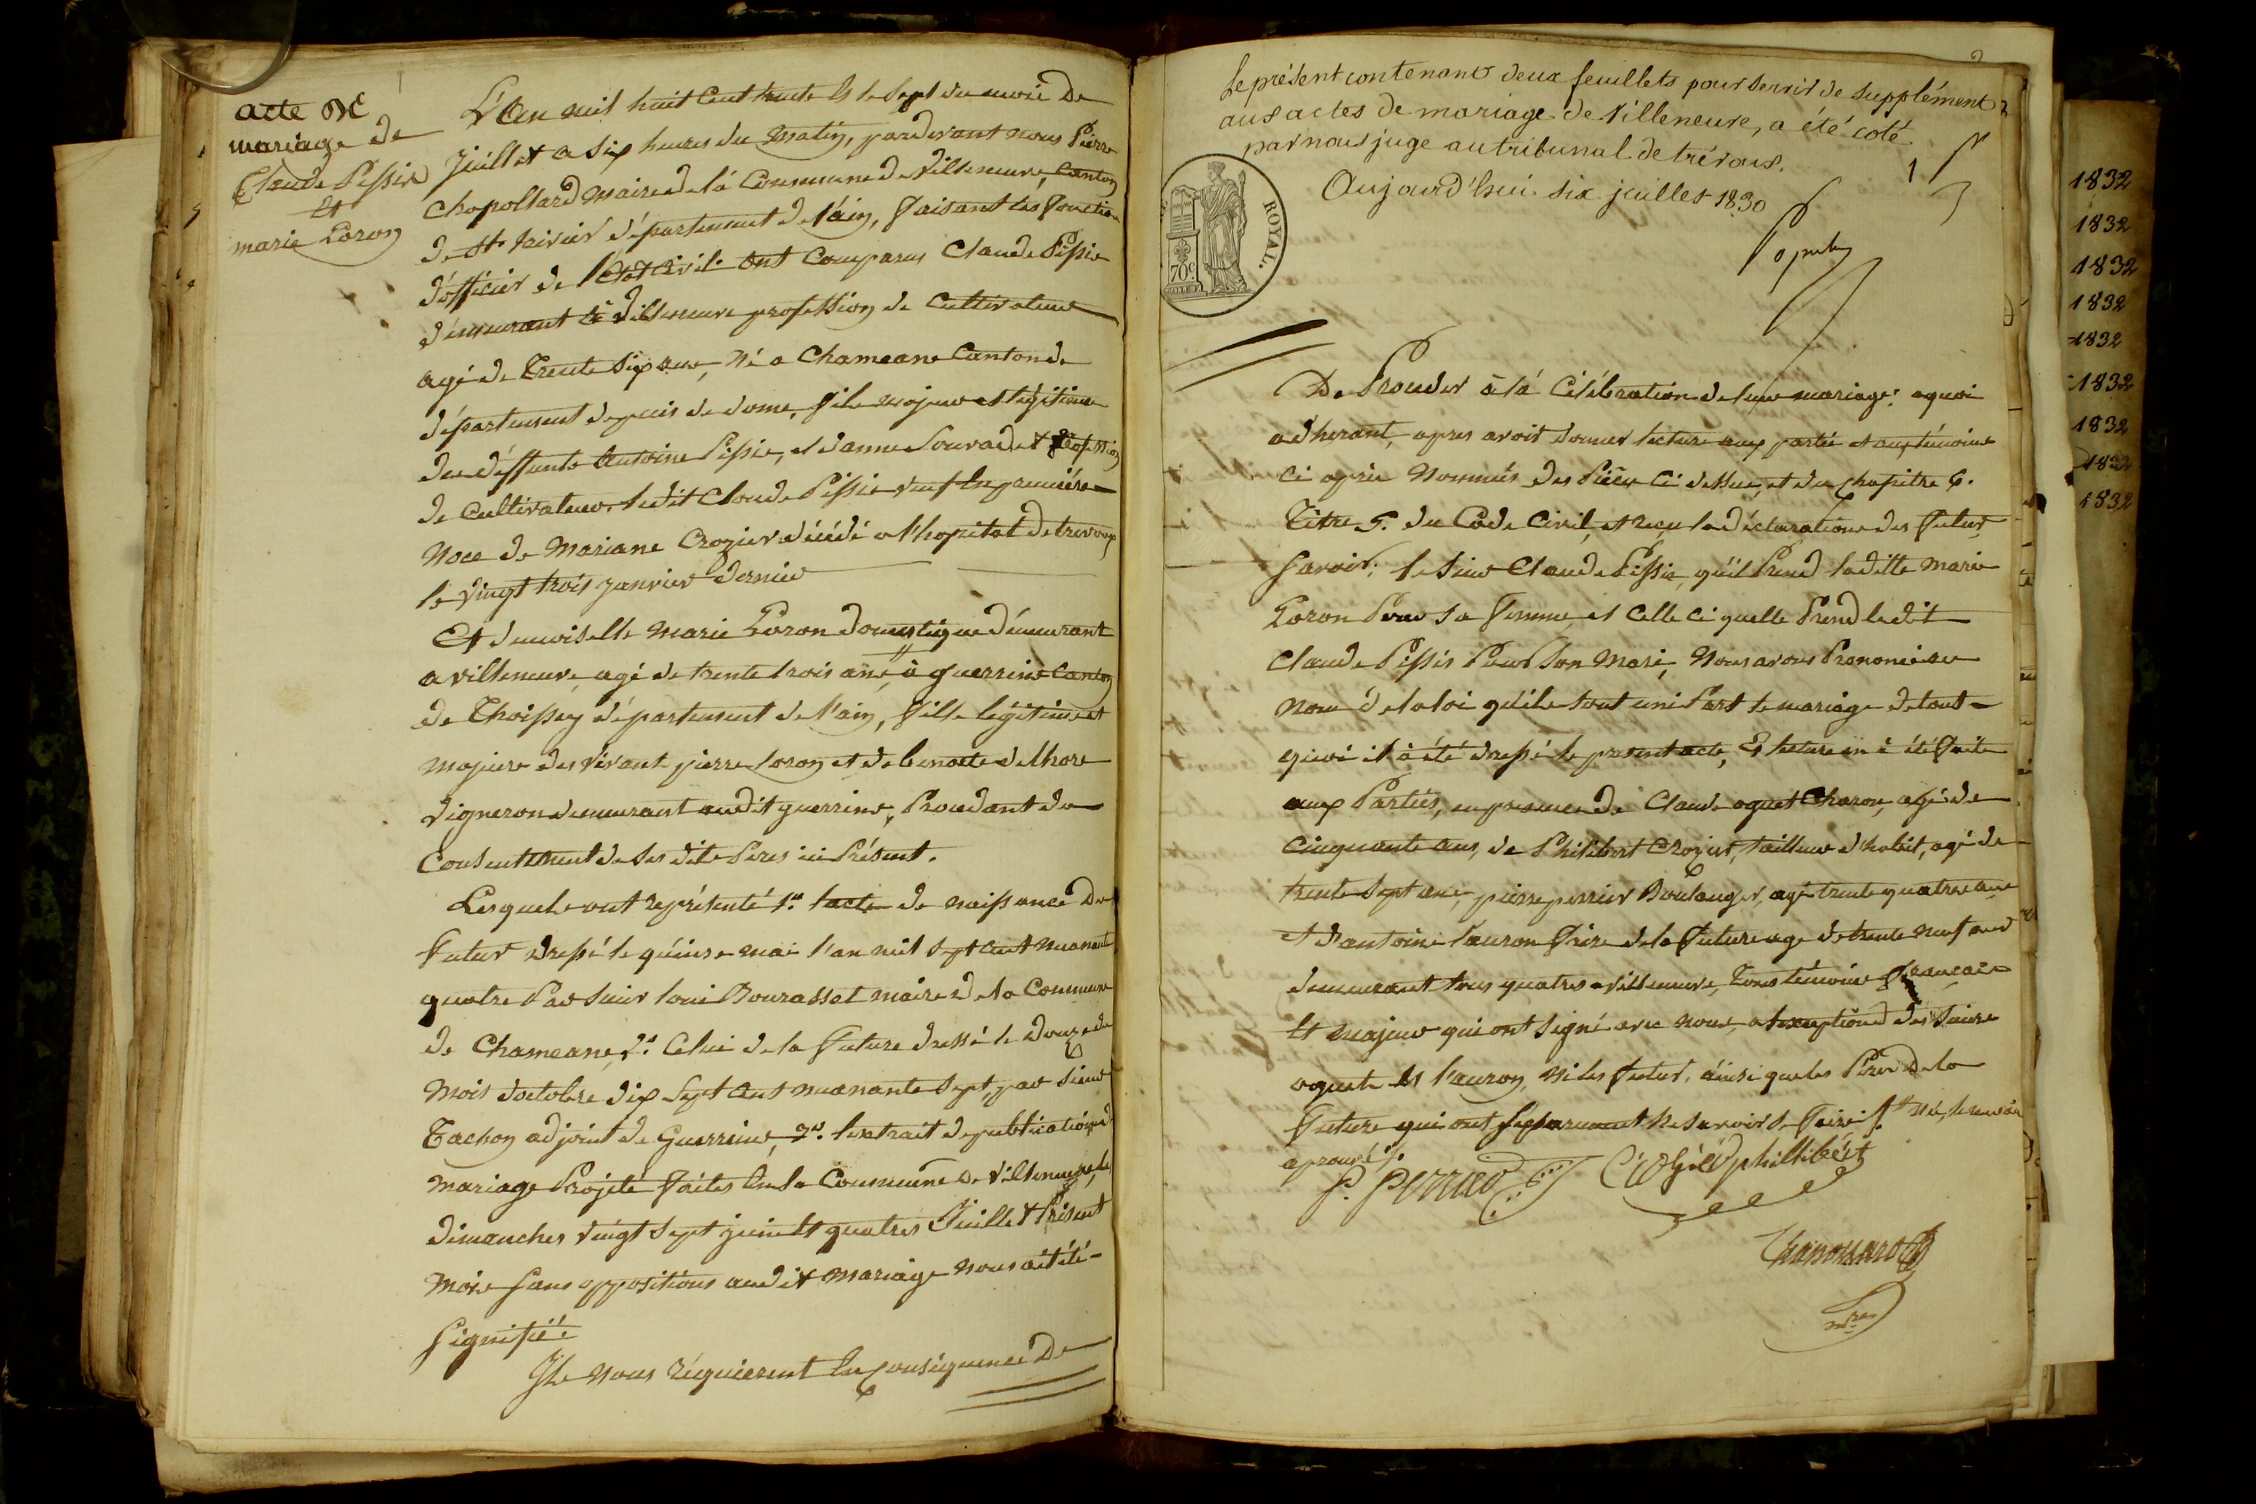 acte De
mariage de
Claude Pissis
Et
marie Loron
L'An mil huit Cent trente Et le sept du mois De
Juillet a Six heures du Matin, pardevant nous Pierre
Chapollard Maire de la Commune de Villeneuve, Canton
de St trivier département de l'ain, faisant les fonction
d'officier de l'état civil. Ont Comparus Claude Pissis
demeurant à Villeneuve profession de Cultivateur
agé de Trente Six ans, Né a Chameane Canton de
département depuis de dome, fils majeur et légitime
des déffunts Antoine Pissis, et d'anne Souvadet profession
de Cultivateur. ledit Claude Pissis veuf En premiére
Noce de Mariane Crozier décédé a l'hopital de trevoux
le vingt trois janvier dernier
Et demoiselle Marie Loron domestique démeurant
a villeneuve, agé de trente trois ans, à guerreins Canton
de Thoissey département de l'ain, fille légitime et
majeure des vivant pierre Loron et de benoite delhore
Vigneron demeurant audit guerreins, Procedant du
Consentement de ses dits Peres ici Présent.
Lesquels ont représenté 1º. l'acte de naissance Du
futur dressé le quinze mai l'an mil sept cent nonante
quatre Par Sieur loui Bourasset maire de la Commune
de Chameane, 2º. Celui de la future dressé le douze du
Mois d'octobre dix sept cent nonante sept, par Sieur
Tachon adjoint de Guerreins, 3º. l'extrait de publication de
mariage Projeté faites En la Commune de Villeneuve, les
dimanches vingt sept juin Et quatres Juillet Présent
Mois sans oppositions audit mariage nous ait été
Signifiée
Ils nous réquierent En Conséquence De
2
Le présent contenant deux feuillets pour servir de supplément
aux actes de mariage de Villeneuve, a été coté
par nous juge au tribunal de trévoux.
Aujourd'hui six juillet 1830
1
ROYAL.
70c.
De Proceder à la Célébration de leur mariage: aquoi
adherant, apres avoir donner lecture aux partie et aux témoins
Ci après Nommés des Pièces Ci dessus, et du chapitre 6.
Titre 5. du Code Civil, et reçu la déclaration des futur
Savoir; le Sieur Claude Pissis, qu'il Prend laditte Marie
Loron Pour Sa Femme et Celle ci quelle Prend ledit
Claude Pissis Pour Son Mari, Nous avons Prononcé au
nom de la loi quils sont uni Part le mariage de tout
quoi il à été dressé le present acte, Et lecture en à été faite
aux Parties, en presence de Claude oguet Charon, agé de
Cinquante ans, de Philibert Crozier, tailleur d'habit, agé de
trente sept ans, pierre perrier Boulanger, agé trente quatre ans
et d'antoine lauron Frère de la future age de trente neuf ans
demeurant tous quatres a villeneuve, Tous témoins français
Et majeur qui ont signé avec nous, a Exception des Sieurs
oguet Et l'auron, Ni les futur, ainsi que les Père de la
future qui ont séparement ne savoir Le Faire
aprouvé
P. Perrier
Crozier philibert
Chapollard
mre
1832
1832
1832
1832
1832
1832
1832
1832
1832